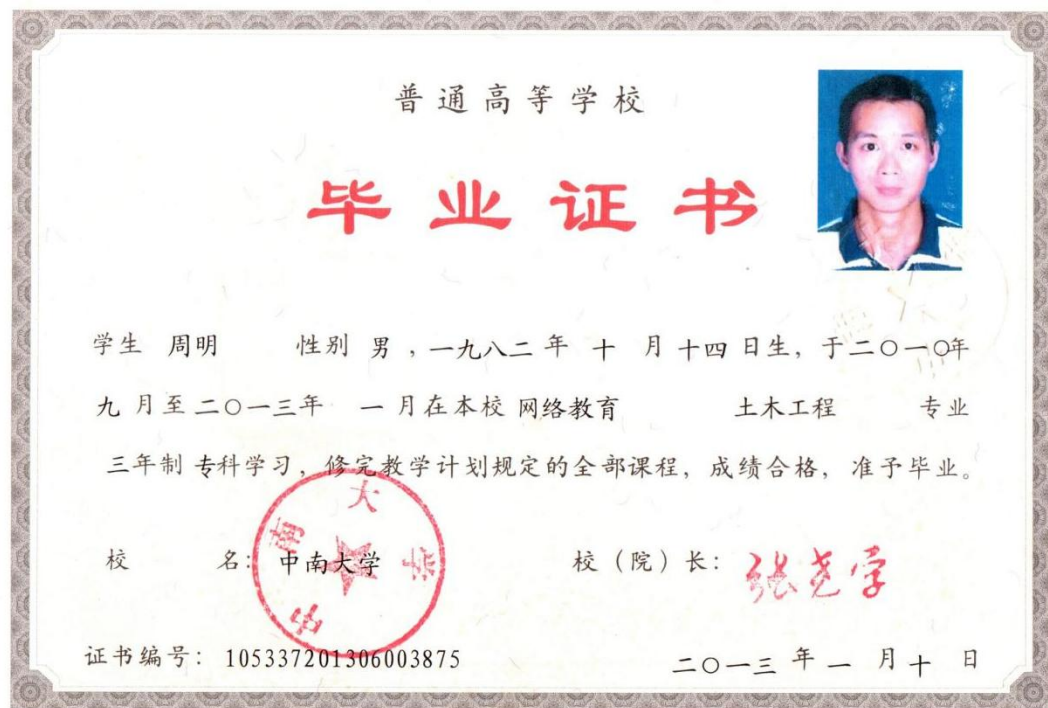 普通高等学校
毕业证书
学生 周明 性别 男 ，一九八二 年 十 月 十四 日生，于二〇一〇年
九 月至二〇一三年 一 月在本校 网络教育 土木工程 专业
三年制 专科学习，修完教学计划规定的全部课程，成绩合格，准予毕业。
校 名：中南大学 校（院）长：张尧学
中南大学
证书编号：105337201306003875 二〇一三 年 一 月 十 日